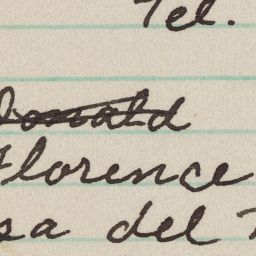 Tel.
Donald
Florence
sa del